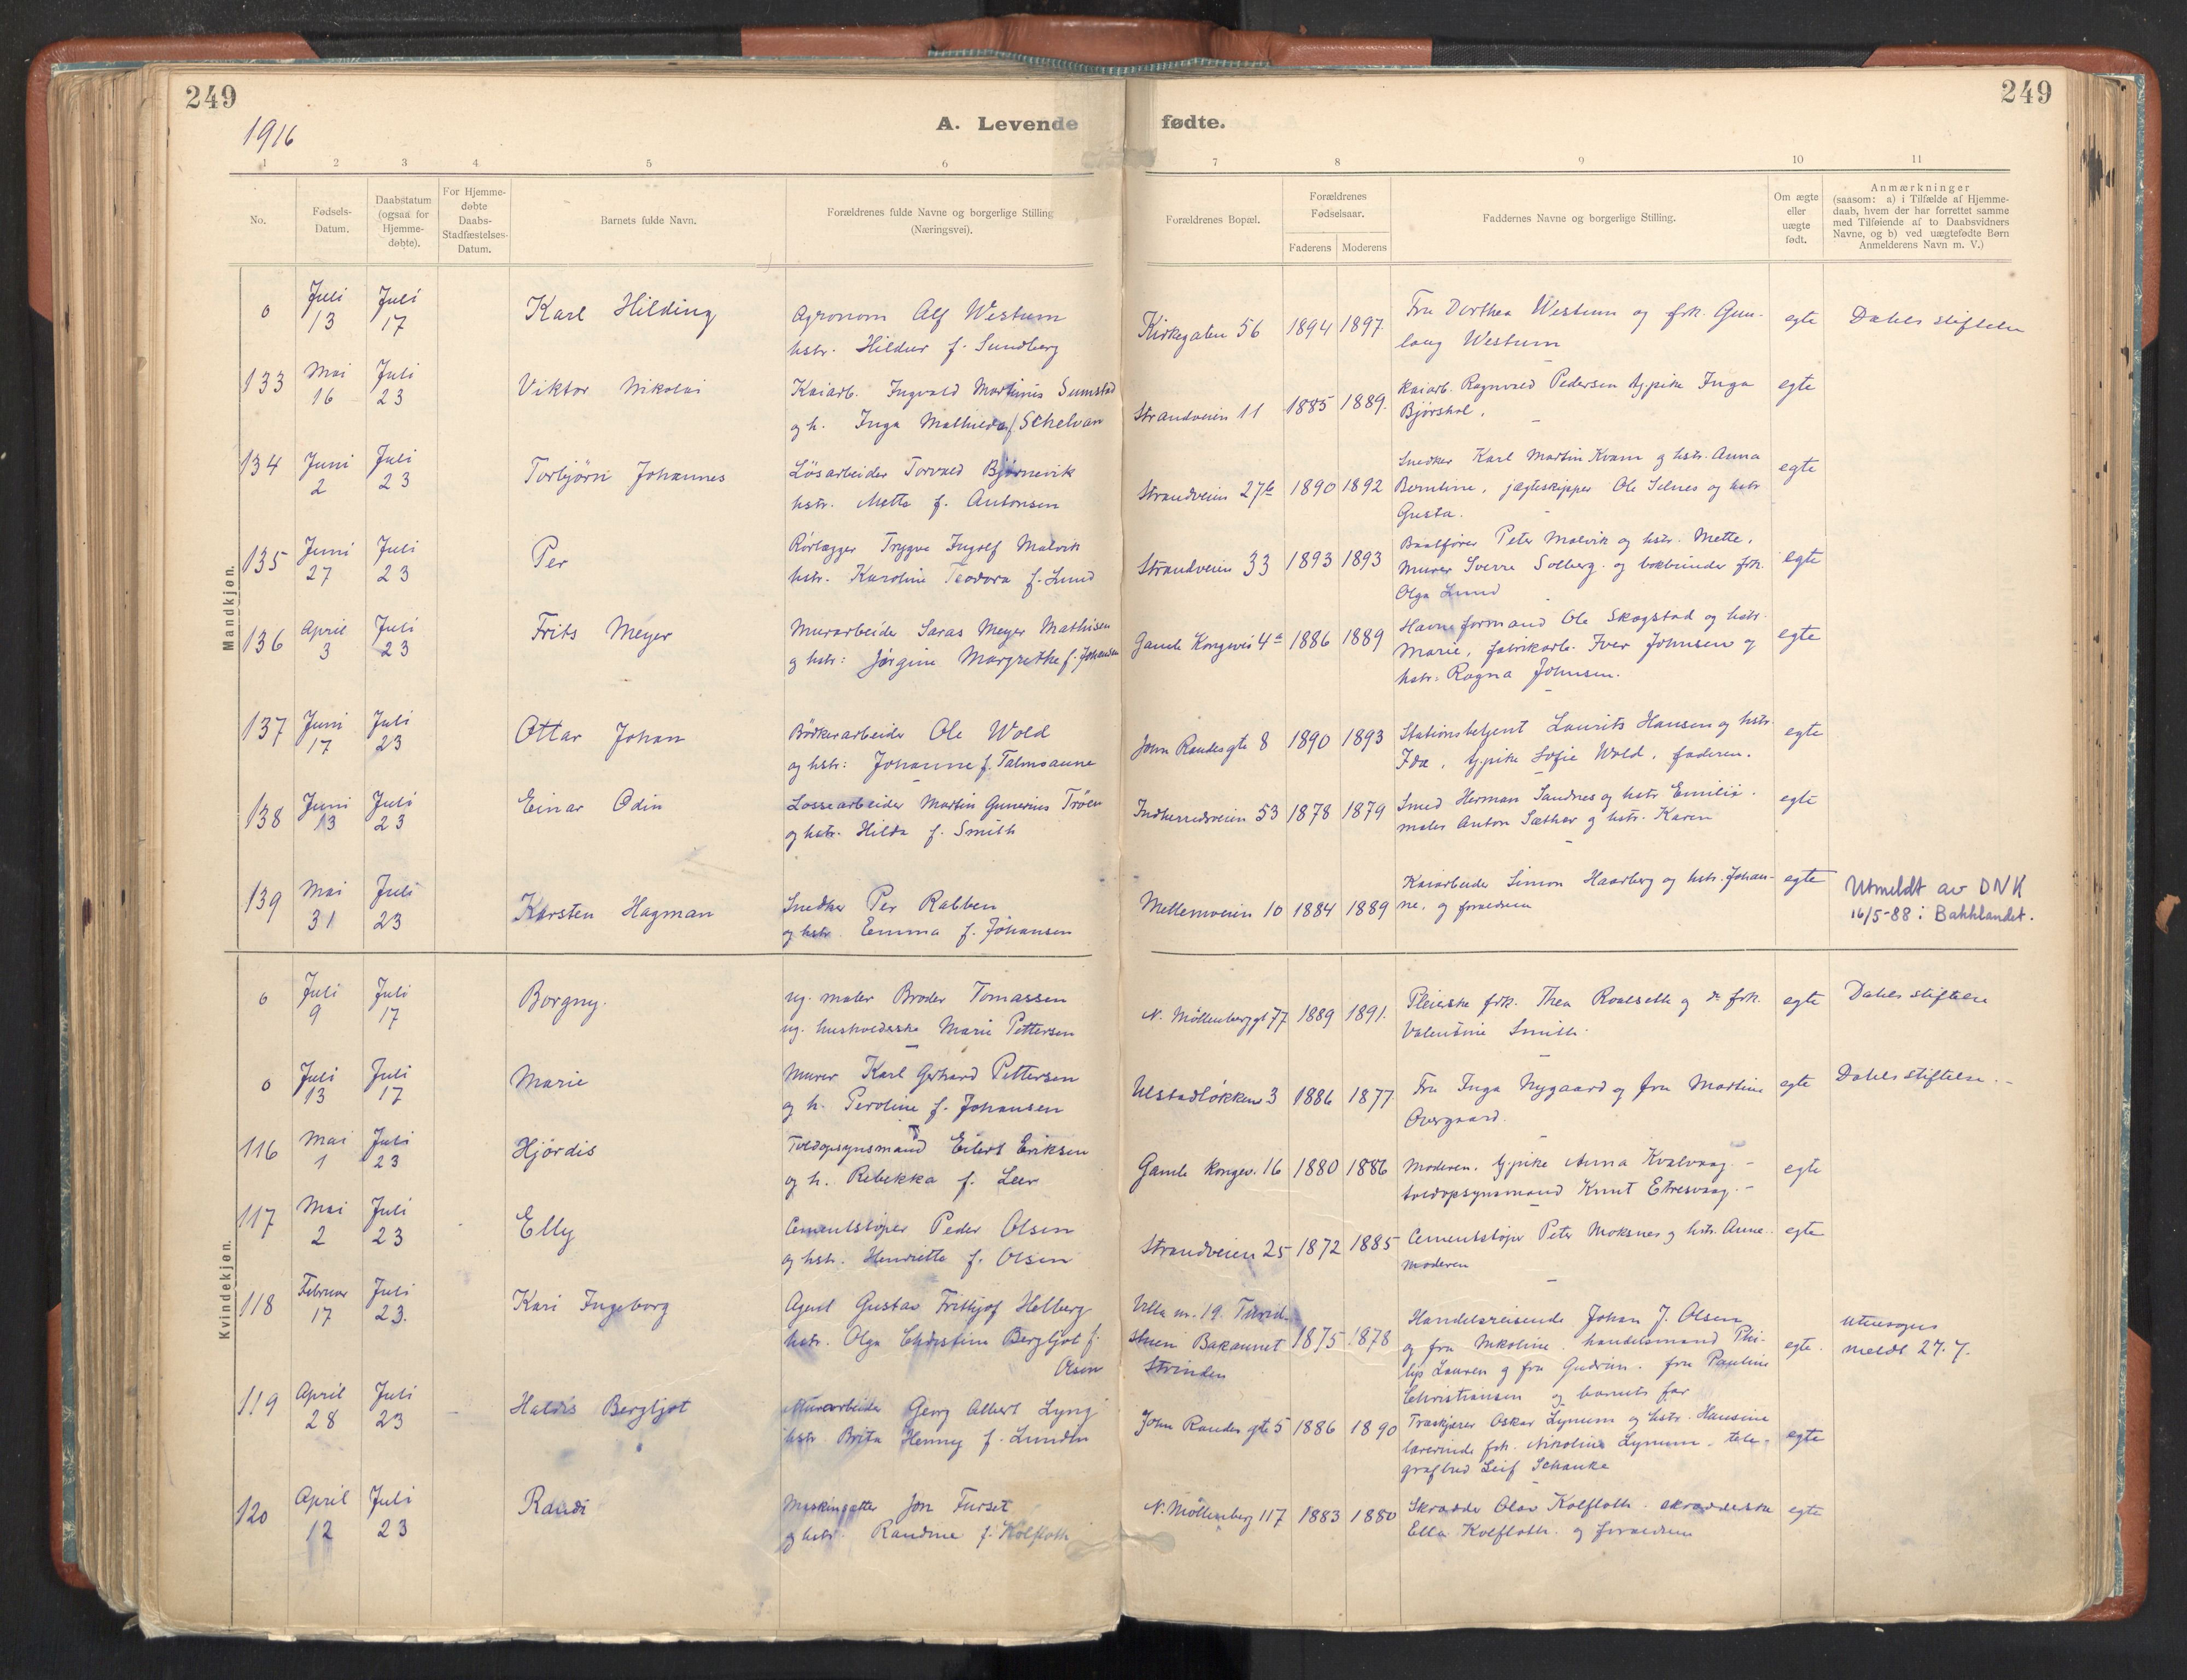 249
249
1916
A. Levende fødte.
1 2 3 4. 5 6 7 8 9 10 11
No.
Fødsels-
Datum.
Daabstatum
(ogsaa for
Hjemme-
døbte).
For Hjemme-
døbte
Daabs-
Stadfæstelses-
Datum.
Barnets fulde Navn.
Forældrenes fulde Navne og borgerlige Stilling
(Næringsvei).
Forældrenes Bopæl.
Forældrenes
Fødselsaar.
Faderens Moderens
Faddernes Navne og borgerlige Stilling.
Om ægte
eller
uægte
født.
Anmærkninger
(saasom: a) i Tilfælde af Hjemme-
daab, hvem der har forrettet samme
med Tilføiende af to Daabsvidners
Navne, og b) ved uægtefødte Børn
Anmelderens Navn m. V.)
Mandkjøn.
0 Juli 13 Juli 17 Karl Hilding
Agronom Alf Westum
hstr. Hildur f. Sundberg
Kirkegaten 56 1894 1897.
Fru Dorthea Westum og frk. Gun-
laug Westum
egte Dahls stiftelse
133 Mai 16 Juli 23 Viktor Nikolai
Kaiarb. Ingvald Martinus Sumstad
og h. Inga Mathilda f. Schelvan
Strandveien 11 1885 1889.
Kaiarb. Ragnvald Pedersen tj.pike Inga
Bjørshol.
egte
134 Juni 2 Juli 23 Torbjörn Johannes
Lösarbeider Torvald Bjørnevik
hstr. Mette f. Antonsen
Strandveien 27b 1890 1892
Snedker Karl Martin Kvam og hstr. Anna
Berntine, jægteskipper Ole Selnes og hstr
Gusta.
egte
135 Juni 27 Juli 23 Per
Rörlægger Trygve Ingolf Malvik
hstr. Karoline Teodora f. Lund
Strandveien 33 1893 1893
Baatfører Peter Malvik og hstr. Mette,
murer Sverre Solberg. og bokbinder frk.
Olga Lund
egte
136 April 3 Juli 23 Frits Meyer
Murarbeider Saras Meyer Mathisen
og hstr: Jørgine Margrethe f. Johansen
Gamle Kongevei 4a 1886 1889
Havneformand Ole Skogstad og hstr.
Marie, fabrikarb. Iver Johnsen og
hstr. Ragna Johnsen.
egte
137 Juni 17 Juli 23 Ottar Johan
Bödkerarbeider Ole Wold
og hstr: Johanne f. Talmoaune
John Raudes gte 8 1890 1893
Stationsbetjent Laurits Hansen og hstr.
Ida, tj.pike Sofie Wold, faderen.
egte
138 Juni 13 Juli 23 Einar Odin
Lossearbeider Martin Gunerius Tröen
og hstr. Hilda f. Smith
Indherredsveien 53 1878 1879
Smed Herman Sandnes og hstr Emilie.
maler Anton Sæther og hstr. Karen
egte
139 Mai 31 Juli 23 Karsten Hagman
Snedker Per Rabben
og hstr. Emma f. Johansen
Mellemveien 10 1884 1889
Kaiarbeider Simon Haarberg og hstr. Johan-
ne, og forældrene
egte
Utmeldt av DNK
16/5-88 i Bakklandet.
Kvindekjøn.
0 Juli 9 Juli 17 Borgny.
ug. maler Broder Tomassen
ug. husholderske Marie Pettersen
N. Möllenberggt 77 1889 1891.
Pleierske frk. Thea Roalseth og do frk.
Valentine Smith.
egte Dahls stiftelse
0 Juli 13 Juli 17 Marie
Murer Karl Gerhard Pettersen
og h. Peroline f. Johansen
Ulstadløkken 3 1886 1877
Fru Inga Nygaard og fru Martine
Overgaard.
egte Dahls stiftelse.
116 Mai 1 Juli 23 Hjördis
Toldopsynsmand Eilert Eriksen
og h. Rebekka f. Leer
Gamle Kongev. 16 1880 1886
Moderen. tj.pike Anna Kvalvaag.
toldopsynsmand Knut Etresvaag.
egte
117 Mai 2 Juli 23 Elly
Cementstöper Peder Olsen
og hstr. Henriette f. Olsen
Strandveien 25 1872 1885
Cementstöper Peter Moksnes og hstr. Anne.
moderen
egte
118 Februar 17 Juli 23. Kari Ingeborg
Agent Gustav Frithjof Helberg
hstr. Olga Christine Bergljot f.
Olsen
Villa nr. 19. 
Bakaunet
Strinden
1875 1878
Handelsreisende Johan J. Olsen
og fru Nikoline. handelsmand Phi-
lip Lauren og fru Gudrun. fru Pauline
Christiansen og barnets far
egte.
utensogns
meldt 27.7.
119 April 28 Juli 23 Haldis Bergljot
Murarbeider Georg Albert Lyng
hstr. Brita Henny f. Lunden
John Raudes gte 5 1886 1890
Træskjærer Oskar Lynum og hstr. Hansine
lærerinde frk. Nikoline Lynum. tele-
grafbud Leif Schanke
egte
120 April 12 Juli 23 Randi
Jon Furset
og hstr. Randine f. Kolfloth
N. Möllenberg 117 1883 1880
Skrædder Olav Kolfloth. skrædderske
Ella Kolfloth. og forældrene
egte